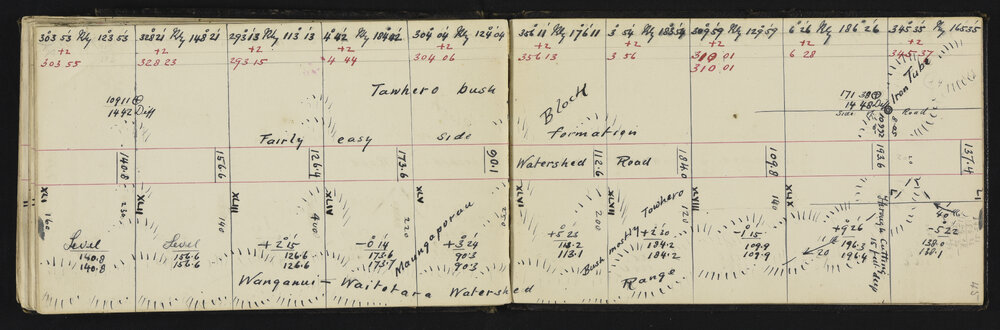 303 53 Rly 123 53
+2
303 55
328 21 Rly 148 21
+2
328 23
293 13 Rly 113 13
+2
293 15
4 42 Rly 184 42
+2
4 44
304 04 Rly 124 04
+2
304 06
356 11 Rly 176 11
+2
356 13
3 54 Rly 183 54
+2
3 56
309 59 Rly 129 59
+2
310 01
310 01
6 26 Rly 186 26
+2
6 28
345 35 Rly 165 35
+2
345 37
109 11
14 42 Diff
Tawhero bush
Block
formation
Fairly easy side
171 38
14 48 Diff
Side Road
Iron Tube
140.8
156.6
126.4
173.6
90.1
Watershed Road
112.6
184.6
109.8
193.6
137.4
XLI
160
230
XLII
140
XLIII
400
XLIV
220
XLV
250
XLVI
200
XLVII
120
XLVIII
140
L
LI
Level
140.8
140.8
Level
156.6
156.6
+2 15
126.6
126.6
-0 14
173.6
173.7
Maungaporau
+3 24
90.3
90.3
+5 23
113.2
113.1
Bush mostly
Tawhero
Range
+2 20
184.2
184.2
-1 15
109.9
109.9
+9 26
196.3
196.4
20
Through Cutting
15 feet deep
40
-5 22
138.0
138.1
Wanganui - Waitotara Watershed
45